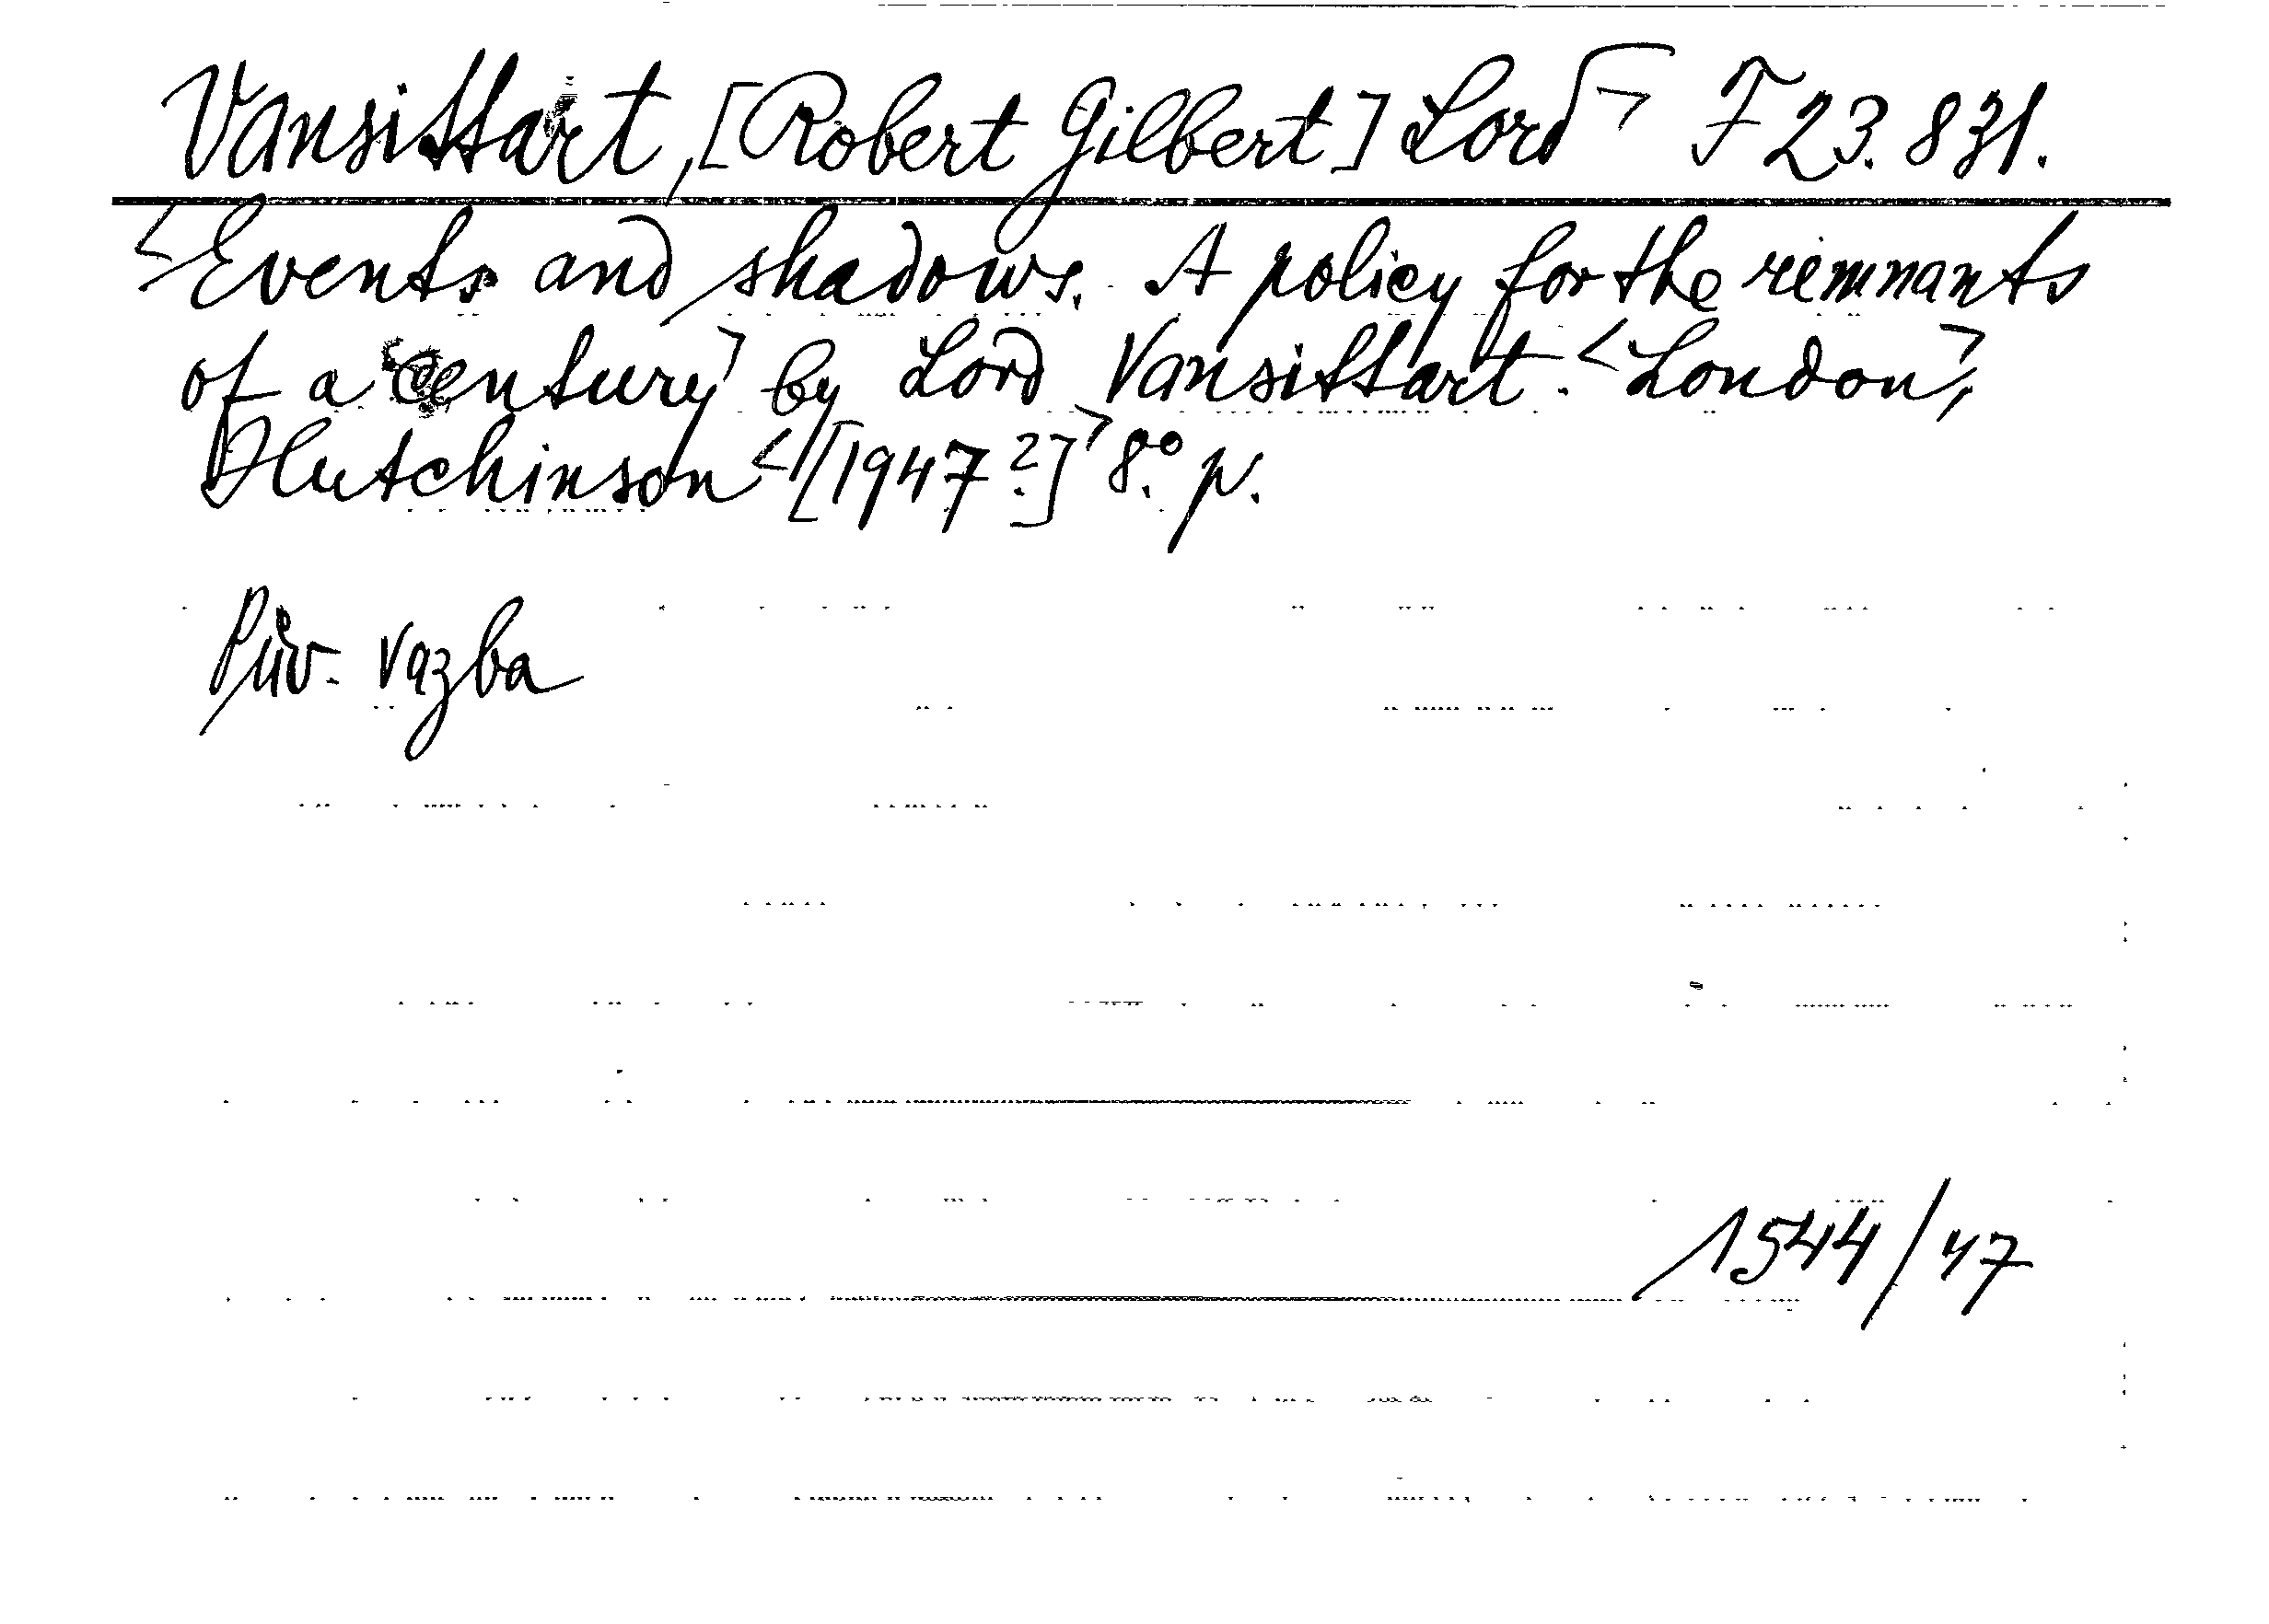 Vansittart, [Robert Gilbert] Lord> F 23.831.
<Events and shadows. A policy for the remnants
of a century> by Lord Vansittart. <London>,
Hutchinson <[1947?]> 8° p.
Pův. vazba
1544/47